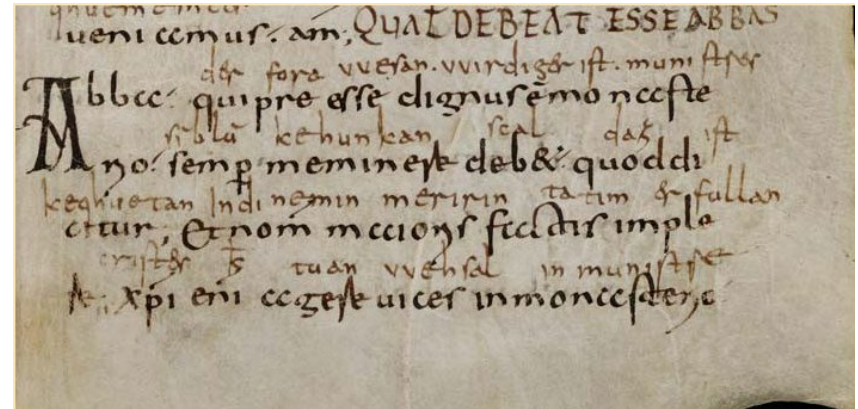 ueniamus. am; QUAL DEBEAT ESSE ABBAS
der fora vvesan. vvirdiger ist. munistres
Abba: qui pre esse dignus ē monaste
siblū kehuckan scal daz ist
rio. semꝑ meminere deb&: quod di
keqhuetan Indi nemin meririn tatim er fullan
citur; Et nom̄ maioris factis imple
cristes tuan vvehsal in munistre
re; xp̄i eni agere uices inmonasterio